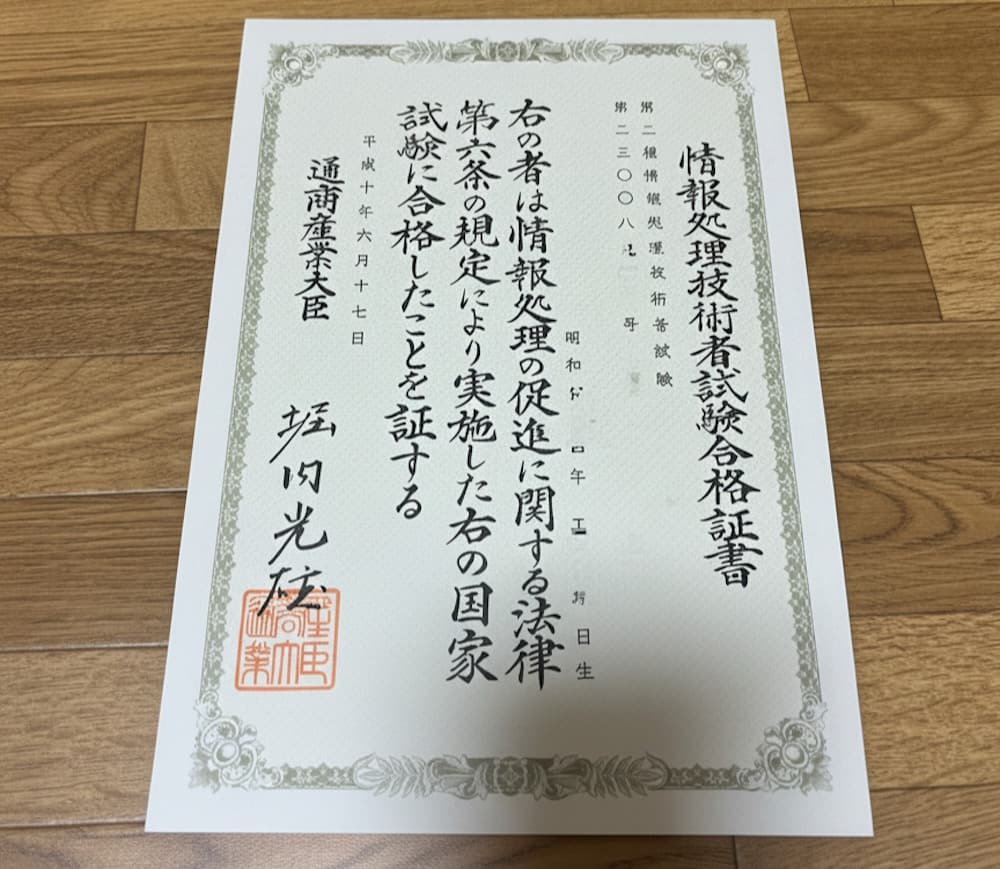 情報処理技術者試験合格証書
第二種情報処理技術者試験
第二三〇〇八
昭和
四年
日生
右の者は情報処理の促進に関する法律
第六条の規定により実施した右の国家
試験に合格したことを証する
平成十年六月十七日
通商産業大臣
堀内光雄